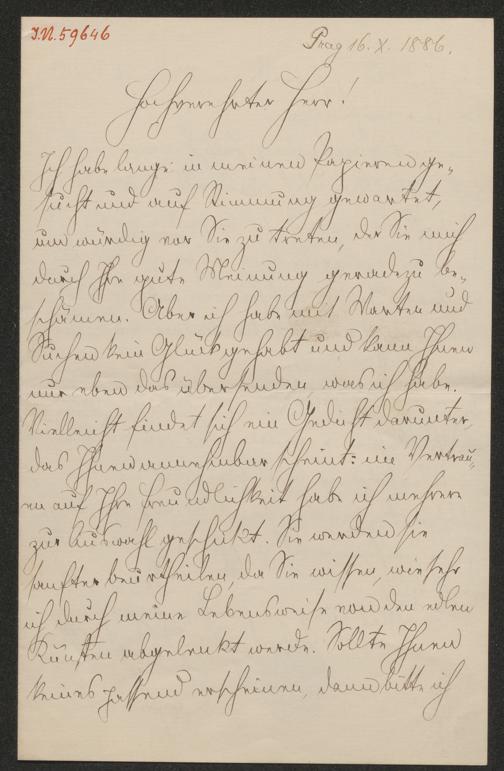 I.N. 59646
Prag 16. X. 1886.
Hochverehrter Herr!
Ich habe lange in meinen Papieren ge-
sucht und auf Stimmung gewartet,
um würdig vor Sie zu treten, der Sie mich
durch Ihre gute Meinung geradezu be-
schämen. Aber ich habe mit Warten und
Suchen kein Glück gehabt und kann Ihnen
nur eben das übersenden was ich habe.
Vielleicht findet sich ein Gedicht darunter,
das Ihnen annehmbar scheint: im Vertrau-
en auf Ihre Freundlichkeit habe ich mehrere
zur Auswahl geschickt. Sie werden sie
sanfter beurtheilen, da Sie wissen, wie sehr
ich durch meine Lebensweise von den edlen
Künsten abgelenkt werde. Sollte Ihnen
keines passend erscheinen, dann bitte ich